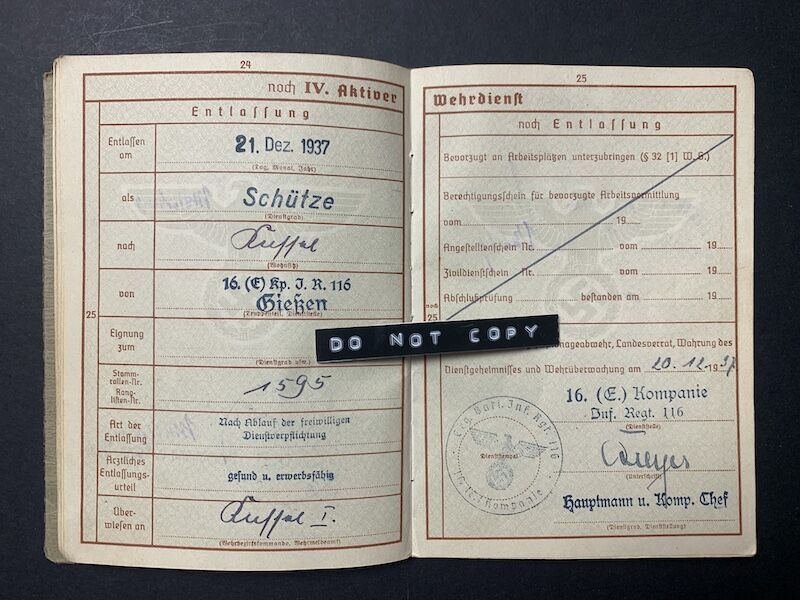 24
noch IV. Aktiver
Entlassung
Entlassen am
21. Dez. 1937
(Tag, Monat, Jahr)
als
Schütze
(Dienstgrad)
nach
(Wohnsitz)
von
16. (E) Kp. I. R. 116
Gießen
(Truppenteil, Dienststelle)
25
Eignung zum
(Dienstgrad usw.)
Stammrollen-Nr.
Ranglisten-Nr.
1595
Art der Entlassung
Nach Ablauf der freiwilligen
Dienstverpflichtung
Ärztliches Entlassungsurteil
gesund u. erwerbsfähig
Überwiesen an
I.
(Wehrbezirkskommando, Wehrmeldeamt)
25
Wehrdienst
noch Entlassung
Bevorzugt an Arbeitsplätzen unterzubringen (§ 32 [1] W. G.)
Berechtigungsschein für bevorzugte Arbeitsvermittlung
vom 19
Angestelltenschein Nr. vom 19
Zivildienstschein Nr. vom 19
Abschlußprüfung bestanden am 19
noch
25
DO NOT COPY
nageabwehr, Landesverrat, Wahrung des
Dienstgeheimnisses und Wehrüberwachung am 20.12.1937
16. (E.) Kompanie
Inf. Regt. 116
(Dienststelle)
Dienststempel
Inf. Rgt. 116
Kompanie
(Unterschrift)
Hauptmann u. Komp. Chef
(Dienstgrad, Dienststellung)